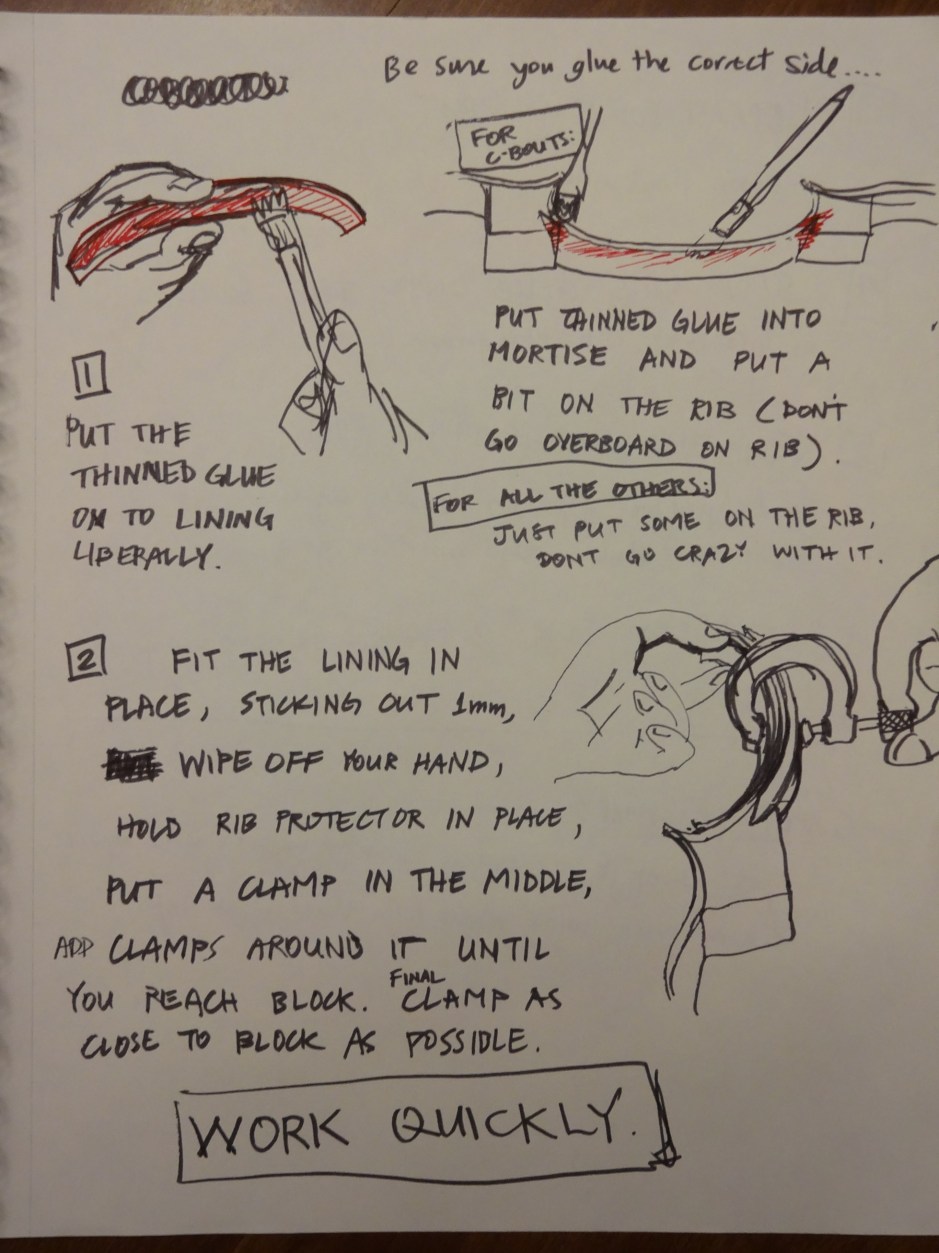 Be sure you glue the correct side....
FOR
C-BOUTS:
1
PUT THE
THINNED GLUE
ON TO LINING
LIBERALLY.
PUT THINNED GLUE INTO
MORTISE AND PUT A
BIT ON THE RIB (DON'T
GO OVERBOARD ON RIB).
FOR ALL THE OTHERS:
JUST PUT SOME ON THE RIB,
DONT GO CRAZY WITH IT.
2 FIT THE LINING IN
PLACE, STICKING OUT 1mm,
WIPE OFF YOUR HAND,
HOLD RIB PROTECTOR IN PLACE,
PUT A CLAMP IN THE MIDDLE,
ADD CLAMPS AROUND IT UNTIL
YOU REACH BLOCK. FINAL CLAMP AS
CLOSE TO BLOCK AS POSSIBLE.
WORK QUICKLY.